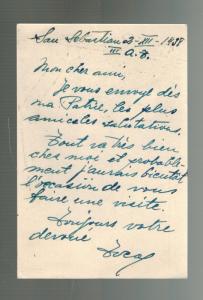 San Sebastian 2-XII-1938
III A. T.
Mon cher ami,
Je vous envoye dès
ma Patrie, les plus
amicales salutations.
Tout va très bien
chez moi et probable-
ment j'aurais bientôt
l'occasion de vous
faire une visite.
Toujours votre
devoué